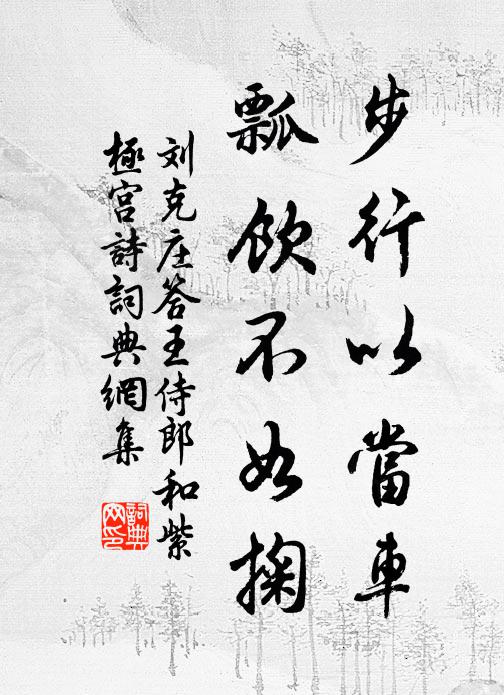 步行以當車
瓢飲不如掬
刘克庄答王侍郎和紫
極宫詩詞典網集
詞典
网印